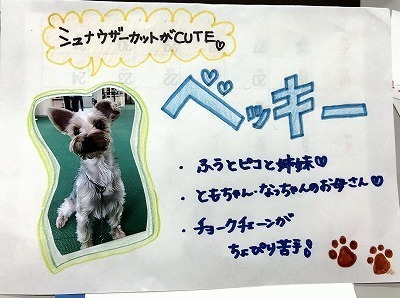 シュナウザーカットがCUTE♡
ベッキー
・ふうとピコと姉妹♡
・ともちゃん・なっちゃんのお母さん♡
・チョークチェーンが
ちょぴり苦手!